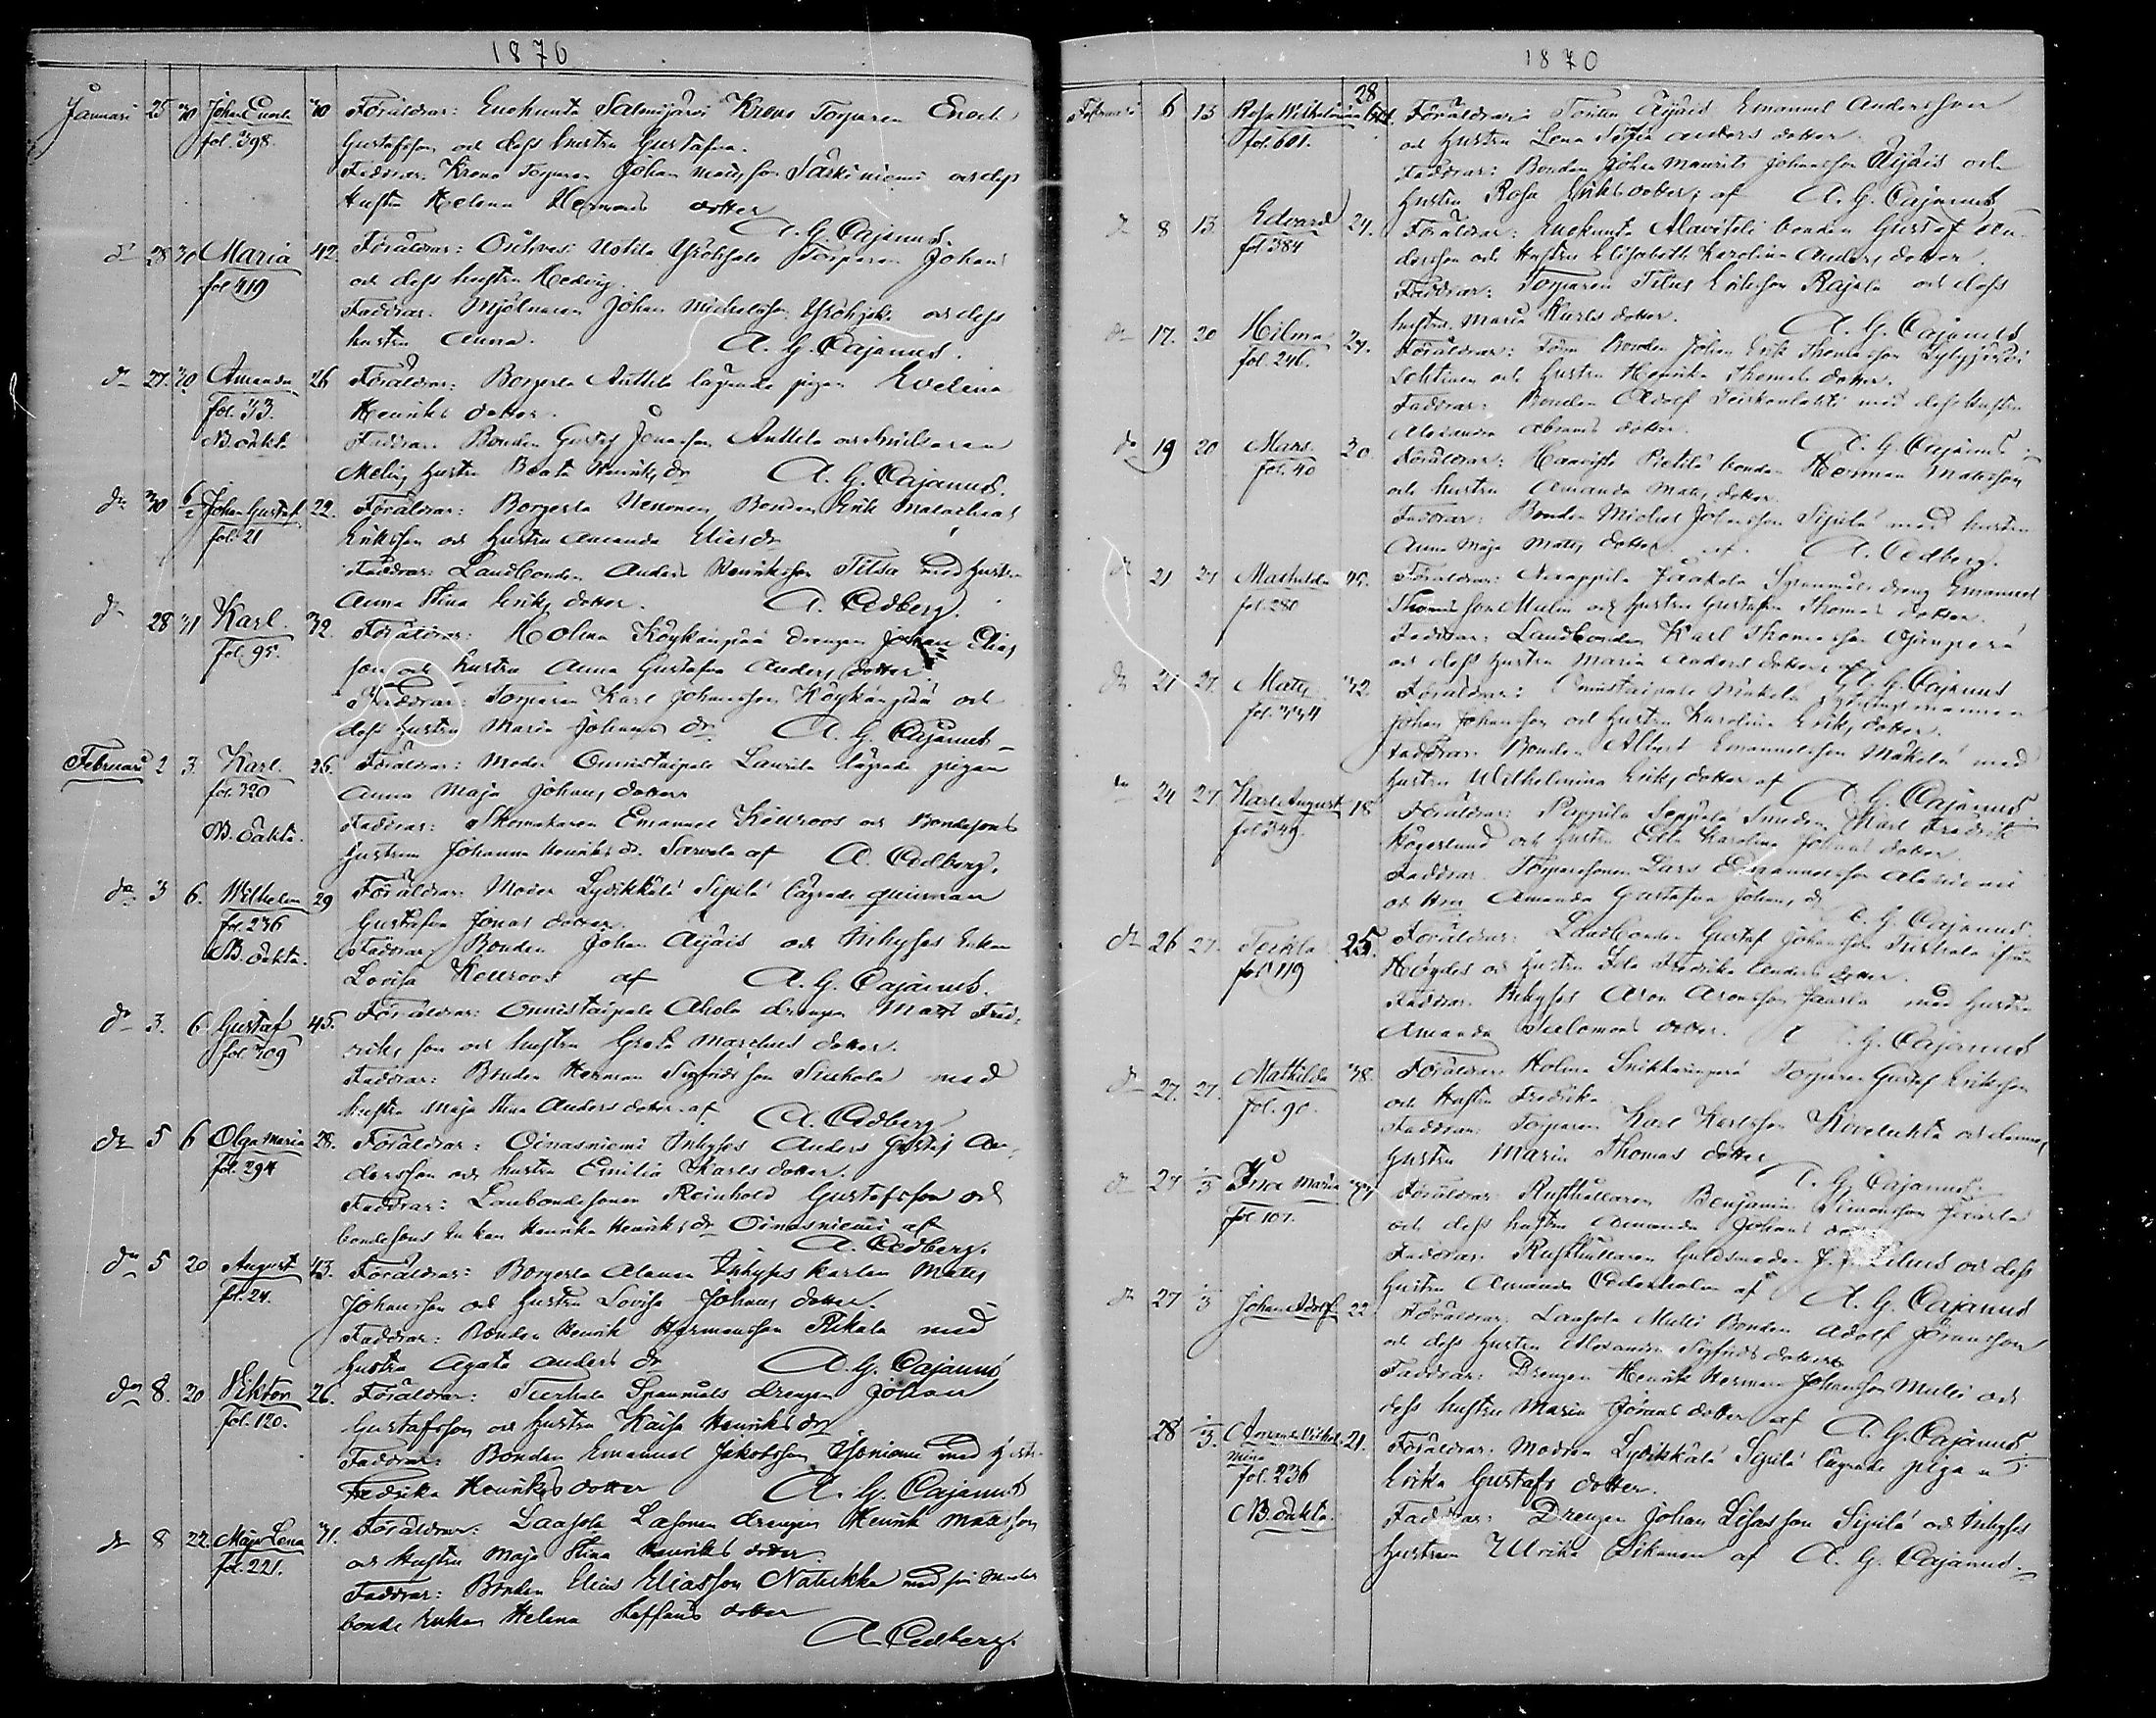 1870
Januari 25 30 Johan Enok 30 Föräldrar: Enehunta Salmijärvi Krono Torparen Enoch
fol. 398. Gustafsson och dess hustru Gustafva.
Faddrar. Krono Torparen Johan Matsson Särkiniemi och dess
Hustru Helena Hermans dotter
A. G. Cajanus.
dn 28 30 Maria 42. Föräldrar: Torparen Johan
fol 419 och dess hustru Hedvig.
Faddrar. Mjölnaren Johan Michelsson och dess
hustru Anna. A. G. Cajanus.
dn 27. 30 Amanda 26 Föräldrar: Borgerla Anttila lägrade pigan Evelina
fol. 33. Henriks dotter.
NB. oäkta Faddrar. Bonden Gustaf Jonasson Anttila och
Melin, hustru Beata Henriks dr A. G. Cajanus.
dn 30 6/2 Johan Gustaf 22. Föräldrar: Borgerla Uenonen, Bonden Erik
fol. 21 Eriksson och Hustru Amanda Elias dr
Faddrar: Landbonden Anders Henriksson Tilsa med Hustru
Anna Stina Eriks dotter. A. Cedberg.
dn 28 31 Karl. 32. Föräldrar: Holma Köykänpää drengen Johan Elias
Fol. 95. son och hustru Anna Gustafva Anders dotter.
Faddrar: Torparen Karl Johansson Köykänpää och
dess Hustru Maria Johans dr. A. G. Cajanus
Februari 2 3. Karl. 26. Föräldrar: Moder Onnistaipale Laurila lägrade pigan
fol. 320 Anna Maja Johans dotter
NB. Oäkta. Faddrar: Skomakaren Emanuel Kouvroos och Bondesons
hustrun Johanna Henriks dr. Sarvela af A. Cedberg.
dn 3 6. Wilhelm 29 Föräldrar: Moder Lydikkälä Sipilä lägrade quinnan
fol. 236 Gustafva Jonas dotter.
NB. Oäkta. Faddrar: Bonden Johan Äijäis och Inhyses Enkan
Lovisa Kouvroos af A. G. Cajanus.
dn 3. 6. Gustaf 45. Föräldrar: Onnistaipale Ahola drengen Mats Fred-
fol. 309 riks son och hustru Greta Marchus dotter.
Faddrar: Bonden Herman Sigfrids son Seuhola med
hustru Maja Stina Anders dotter. af A. Cedberg
dn 5 6 Olga Maria 28. Föräldrar: Oinasniemi Inhyses Anders Gustaf An-
fol. 294 dersson och hustru Emilia Karls dotter.
Faddrar: Lanbondesonen Reinhold Gustafsson och
bondesons Enkan Henrika Henriks dr Oinasniemi af
A. Cedberg.
dn 5 20 August 43. Föräldrar: Borgerla Alanen Inhyses karlen Mats
fol. 24. Johansson och Hustru Lovisa Johans dotter.
Faddrar: Bonden Henrik Hermansson Pikala med
hustru Agata Anders dr A. G. Cajanus
dn 8. 20 Viktor 26. Föräldrar: Spannmåls drengen Johan
fol. 120. Gustafsson och Hustru Kaisa Henriks dr
Faddrar: Bonden Emanuel Jakobsson Isoniemi med hustru
Fredrika Henriksdotter A. G. Cajanus
dn 8 22 Maja Lena 31. Föräldrar: Laasola Lasonen drengen Henrik Matsson
fol. 221. och Hustru Maja Stina Henriks dotter.
Faddrar: Bonden Elias Eliasson Natukka med sin Moder
bonde Enkan Helena Staffans dotter
A. Cedberg.
1870
28
Februari 6 13 Rosa Wilhelmina Föräldrar: Äijäis Emanuel Andersson
fol. 601. och Hustru Lena Sofia Anders dotter.
Faddrar: Bonden Johan Maurits Johansson Äijäis och
hustru Rosa Eriksdotter, af A. G. Cajanus
dn 8 13. Edvard 24. Föräldrar: Enehunta Alavitili bonden Gustaf An-
fol 384 dersson och Hustru Elisabeth Karolina Anders dotter.
Faddrar: Torparen Titus Eriksson Rajala och dess
hustru Maria Karls dotter. A. G. Cajanus
dn 17. 20 Hilma 24. Föräldrar: Bonden Johan Erik Thomasson
fol. 246. Lehtinen och hustru Henrika Thomas dotter.
Faddrar: Bonden Adolf med dess Hustru
Alexandra Abrams dotter. A. G. Cajanus
dn 19 20 Mats 30. Föräldrar: Haavisto Pietilä bonden Herman Matsson
fol. 40 och hustru Amanda Mats dotter.
Faddrar: Bonden Michel Johansson Sipilä med hustru
Anna Maja Mats dotter. af. A. Cedberg.
dn 21 27 Mathilda 45. Föräldrar: Jaakola Spannmålsdreng Emanuel
fol. 280 Thomasson Malm och hustru Gustafva Thomas dotter.
Faddrar: Landbonden Karl Thomasson Ojanperä
och dess Hustru Maria Anders dotter, af A. G. Cajanus
dn 21 27. Mats 32. Föräldrar: Onnistaipale Mäkelä
fol. 334 Johan Johansson och Hustru Karolina Eriks dotter.
Faddrar: Bonden Albert Emanuelsson Mäkelä med
hustru Wilhelmina Eriks dotter af A. G. Cajanus
dn 24 27 Karl August 18 Föräldrar: Peppila Seppälä Smeden Karl Fredrik
fol 349. Högerlund och Hustru Edla Karolina Johans dotter.
Faddrar. Torparesonen Lars Emanuelsson Alaniemi
och Hru Amanda Gustafva Johans dr A. G. Cajanus.
dn 26 27. Tekla 25. Föräldrar: Landbonden Gustaf Johansson
fol 119 och Hustru Ida Fredrika Anders dotter.
Faddrar. Inhyses Aron Aronsson Jaarla med hustru
Amanda Salomons dotter. A. G. Cajanus
dn 27. 27. Mathilda 38. Föräldrar: Holma Torparen Gustaf Eriksson
fol. 90. och Hustru Fredrika.
Faddrar: Torparen Karl Karlsson Kovelahti och dennes
Hustru Maria Thomas dotter
A. G. Cajanus.
dn 27 1/3 Ina Maria Föräldrar: Rusthållaren Benjamin Simonsson Jaarla
fol 101. och dess hustru Amanda Johans
Faddrar: Rusthållaren Guldsmeden J. J. och dess
hustru Amanda Cederholm af A. G. Cajanus
dn 27 1/3 Johan Adolf 22. Föräldrar: Laasola Mulli Bonden Adolf Göransson
och dess Hustru Alexandra Sigfrids dotter
Faddrar: Drengen Henrik Herman Johansson Mulli och
dess hustru Maria Görans dotter af A. G. Cajanus
28 1/3. Amanda Wilhel- 21. Föräldrar: Modren Lydikkälä Sipilä lägrade pigan
mina Erika Gustafs dotter.
fol. 236
NB. oäkta. Faddrar: Drengen Johan Sipilä och Inhyses
hustrun Ulrika Sikanen af A. G. Cajanus